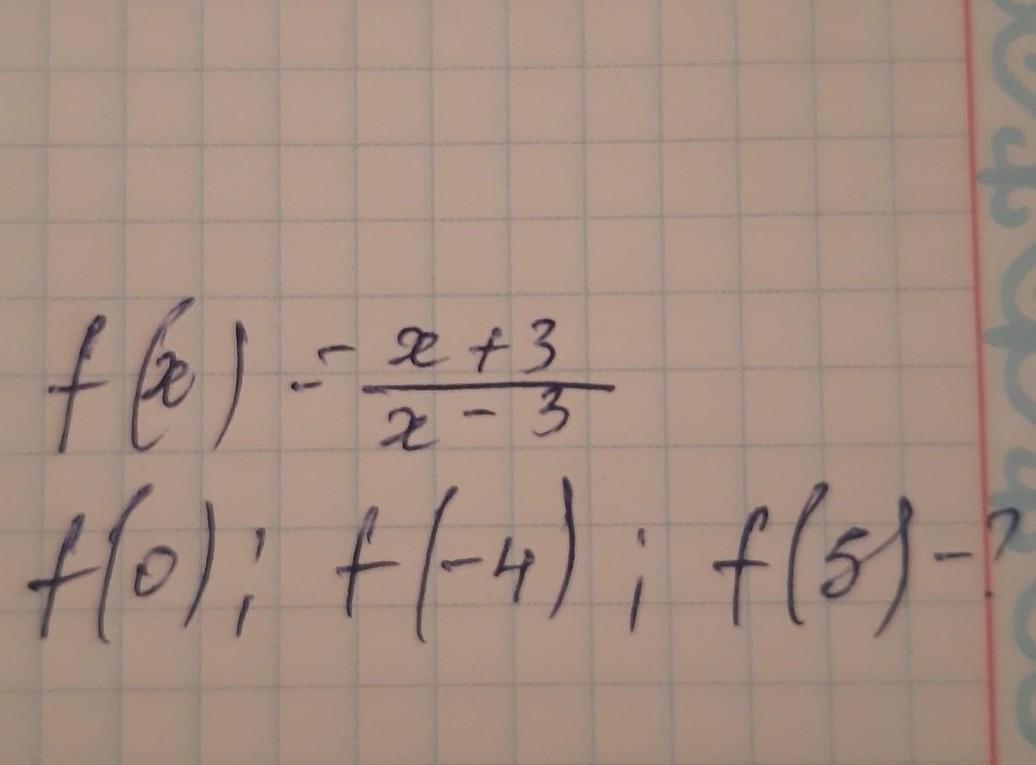 f(x) = x + 3 / x - 3
f(0); f(-4); f(5) - ?